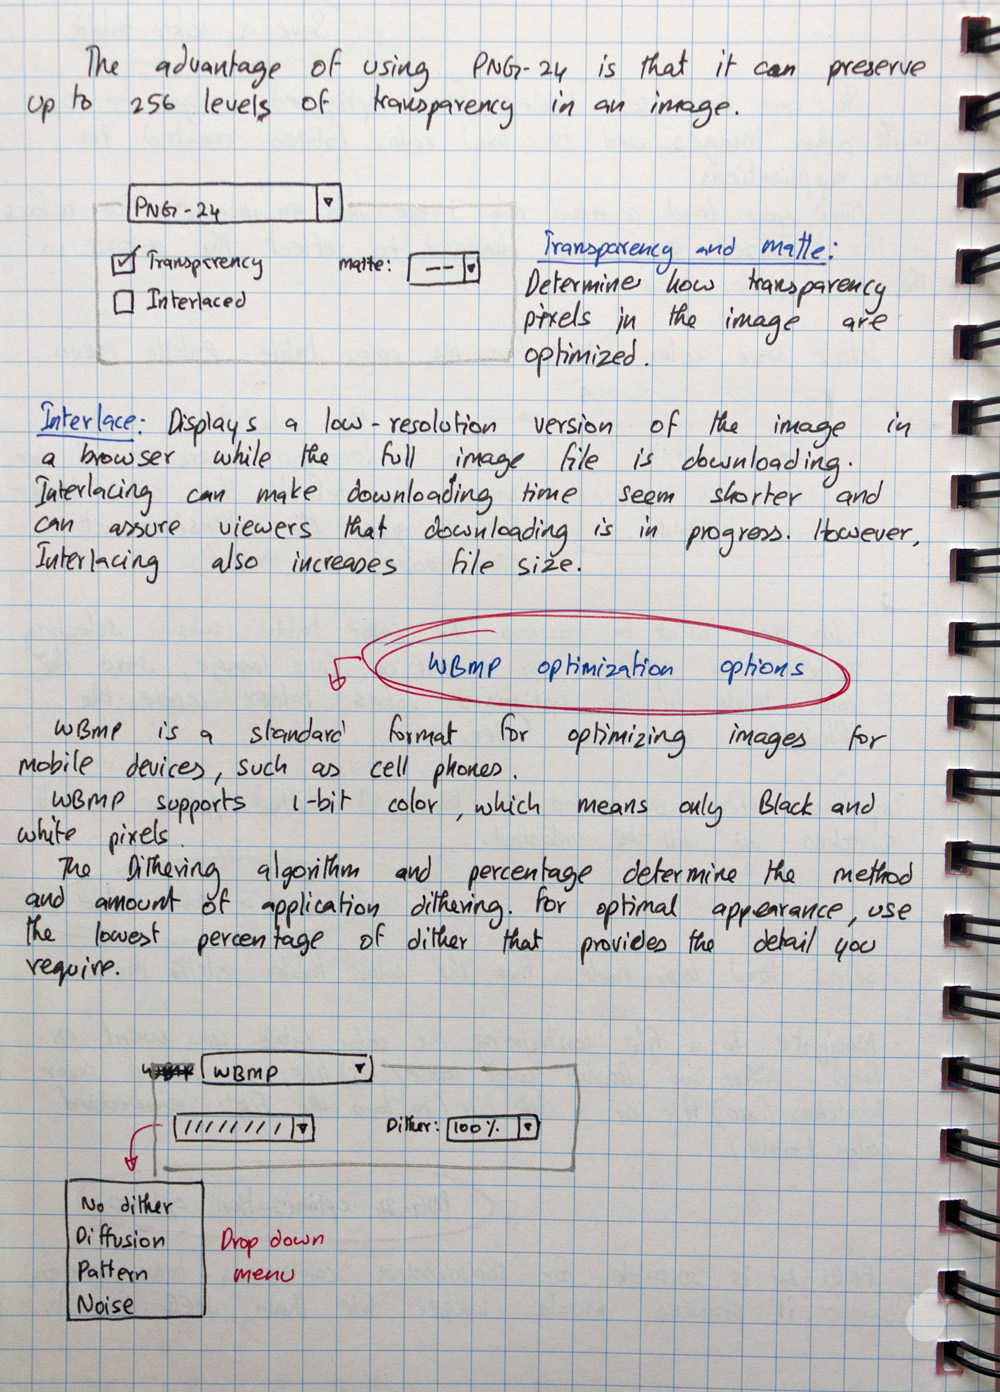 The advantage of using PNG-24 is that it can preserve
up to 256 levels of transparency in an image.
PNG-24
Transparency
matte: --
Interlaced
Transparency and matte:
Determines how transparency
pixels in the image are
optimized.
Interlace: Displays a low-resolution version of the image in
a browser while the full image file is downloading.
Interlacing can make downloading time seem shorter and
can assure viewers that downloading is in progress. However,
Interlacing also increases file size.
WBMP optimization options
WBMP is a standard format for optimizing images for
mobile devices, such as cell phones.
WBMP supports 1-bit color, which means only Black and
white pixels.
The Dithering algorithm and percentage determine the method
and amount of application dithering. For optimal appearance, use
the lowest percentage of dither that provides the detail you
require.
WBMP
Dither: 100%
No dither
Diffusion
Pattern
Noise
Drop down
menu